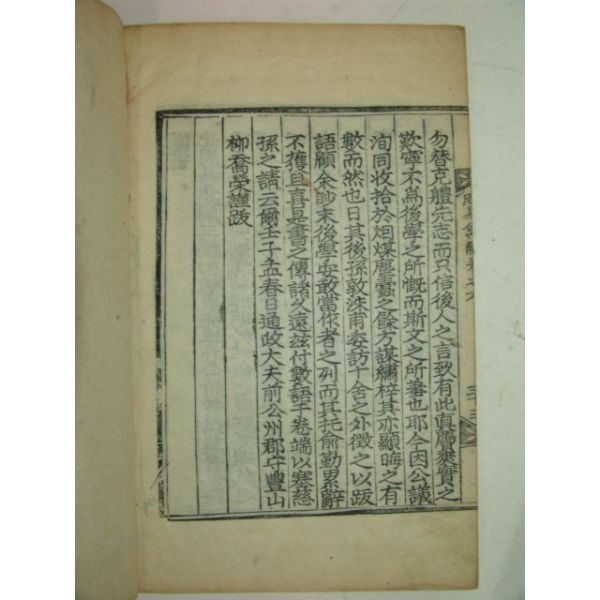 勿替克軆先志而只信後人之言致有此眞贋爽實之
歎寧不爲後學之所慨而斯文之所羞也耶今因公議
洵同收拾於烜煤塵蠹之餘方謀繡梓其亦顯晦之有
數而然也日其後孫敦涉甫委訪十舍之外徵之以跋
語顧余眇末後學安敢當作者之列而其托俞勤累辭
不獲且喜是書之傳諸久遠玆付數語于卷端以塞慈
孫之請云爾壬子孟春日通政大夫前公州郡守豊山
柳喬榮謹跋